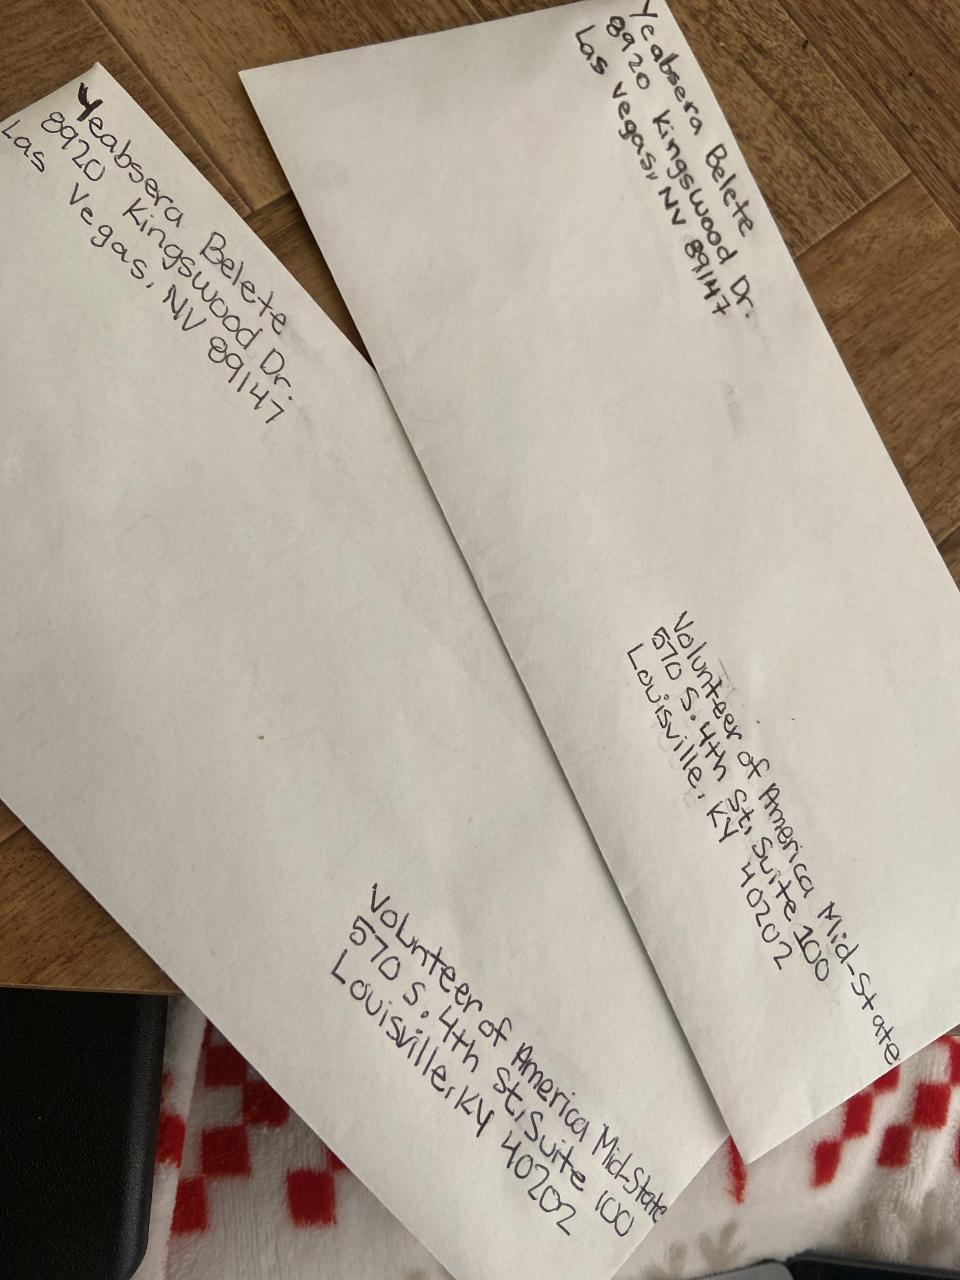 Yeabsera Belete
8920 Kingswood Dr.
Las Vegas, NV 89147
Volunteer of America Mid-State
570 S. 4th St, Suite 100
Louisville, KY 40202
Yeabsera Belete
8920 Kingswood Dr.
Las Vegas, NV 89147
Volunteer of America Mid-State
570 S. 4th St, Suite 100
Louisville, KY 40202